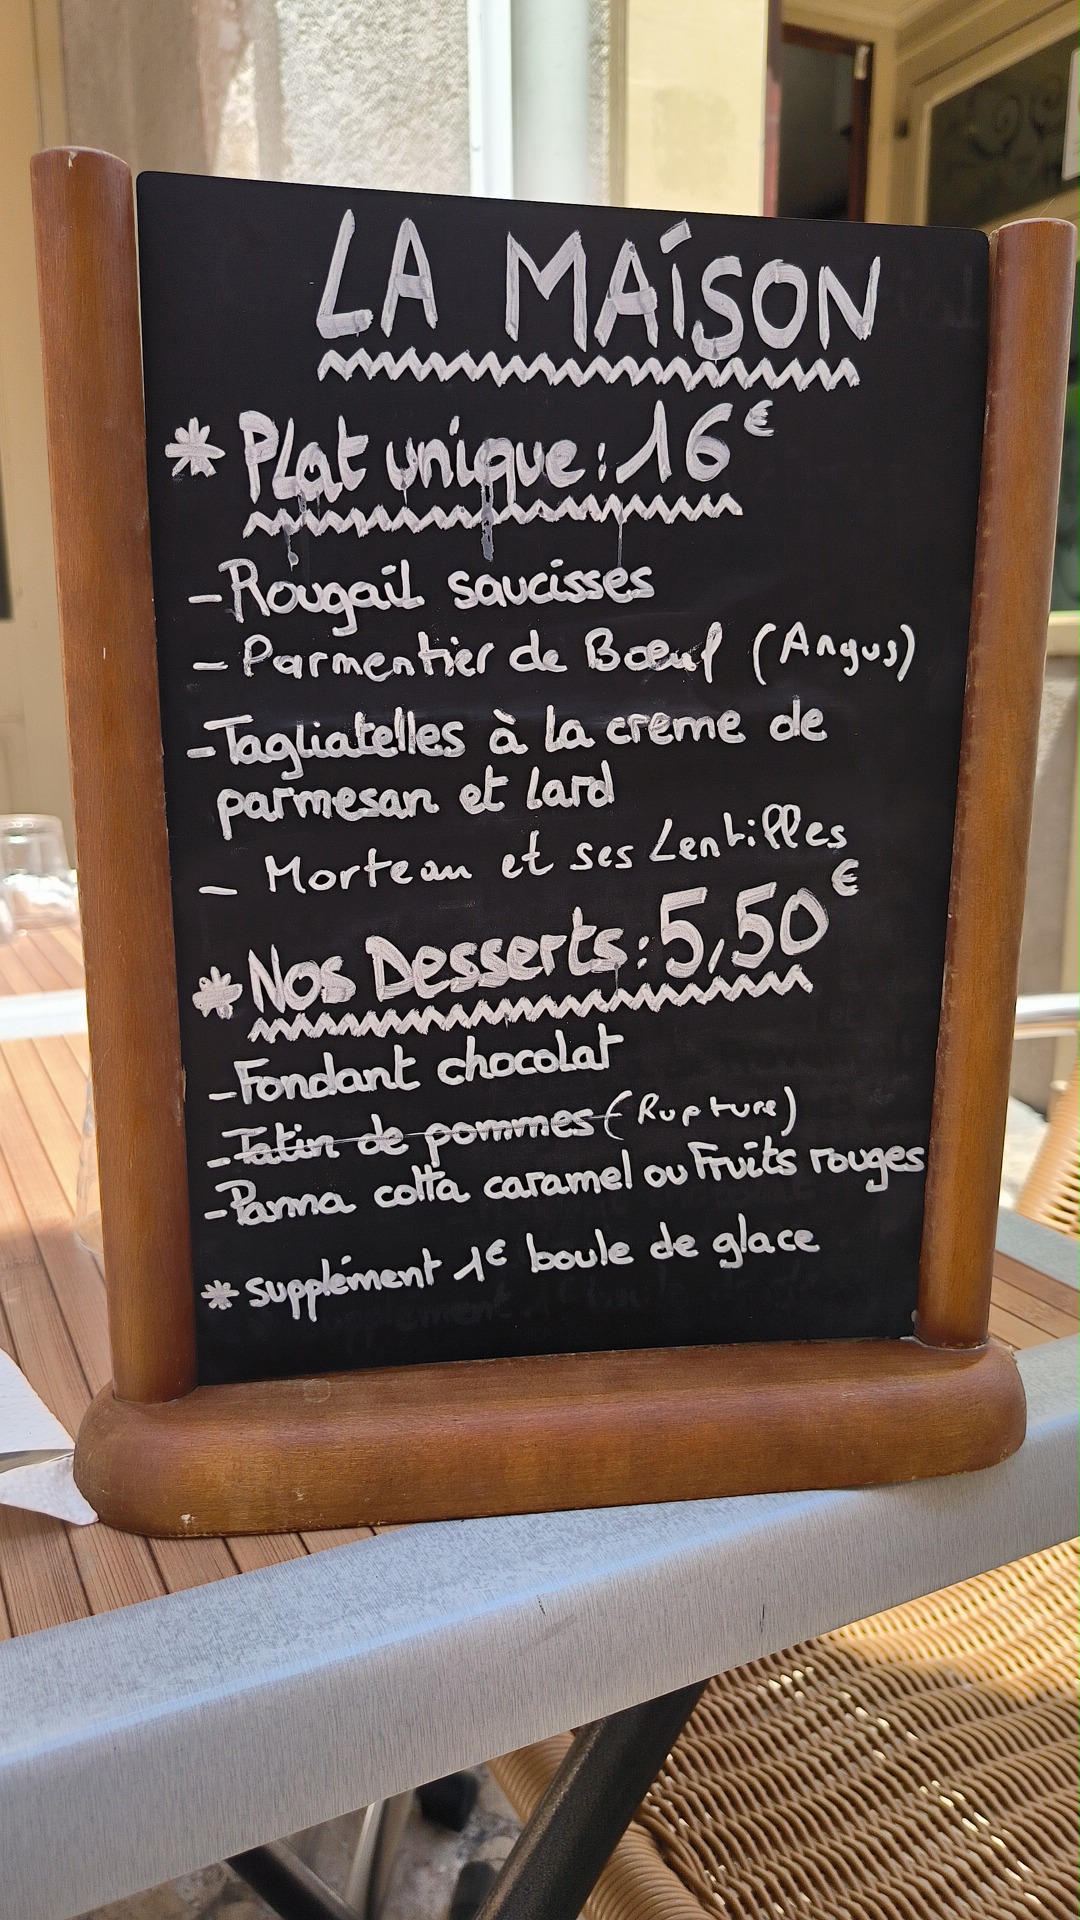 LA MAÍSON
* Plat unique : 16€
- Rougail saucisses
- Parmentier de Bœuf (Angus)
- Tagliatelles à la creme de
parmesan et lard
- Morteau et ses Lentilles
* Nos Desserts : 5,50€
- Fondant chocolat
- Tatin de pommes (Rupture)
- Panna cotta caramel ou Fruits rouges
* supplément 1€ boule de glace